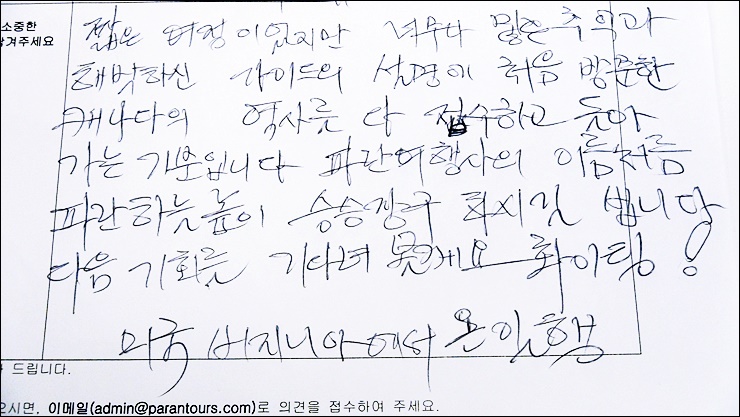 소중한
남겨주세요
짧은 여정이었지만 너무나 많은 추억과
해박하신 가이드의 설명이 처음 방문한
캐나다의 역사를 다 접수하고 돌아
가는 기분입니다 파란여행사의 이름처럼
파란하늘 높이 승승장구 하시길 빕니다
다음 기회를 기다려 볼게요 화이팅!
미국 버지니아에서 온 일행
드립니다.
으시면, 이메일(admin@parantours.com)로 의견을 접수하여 주세요.